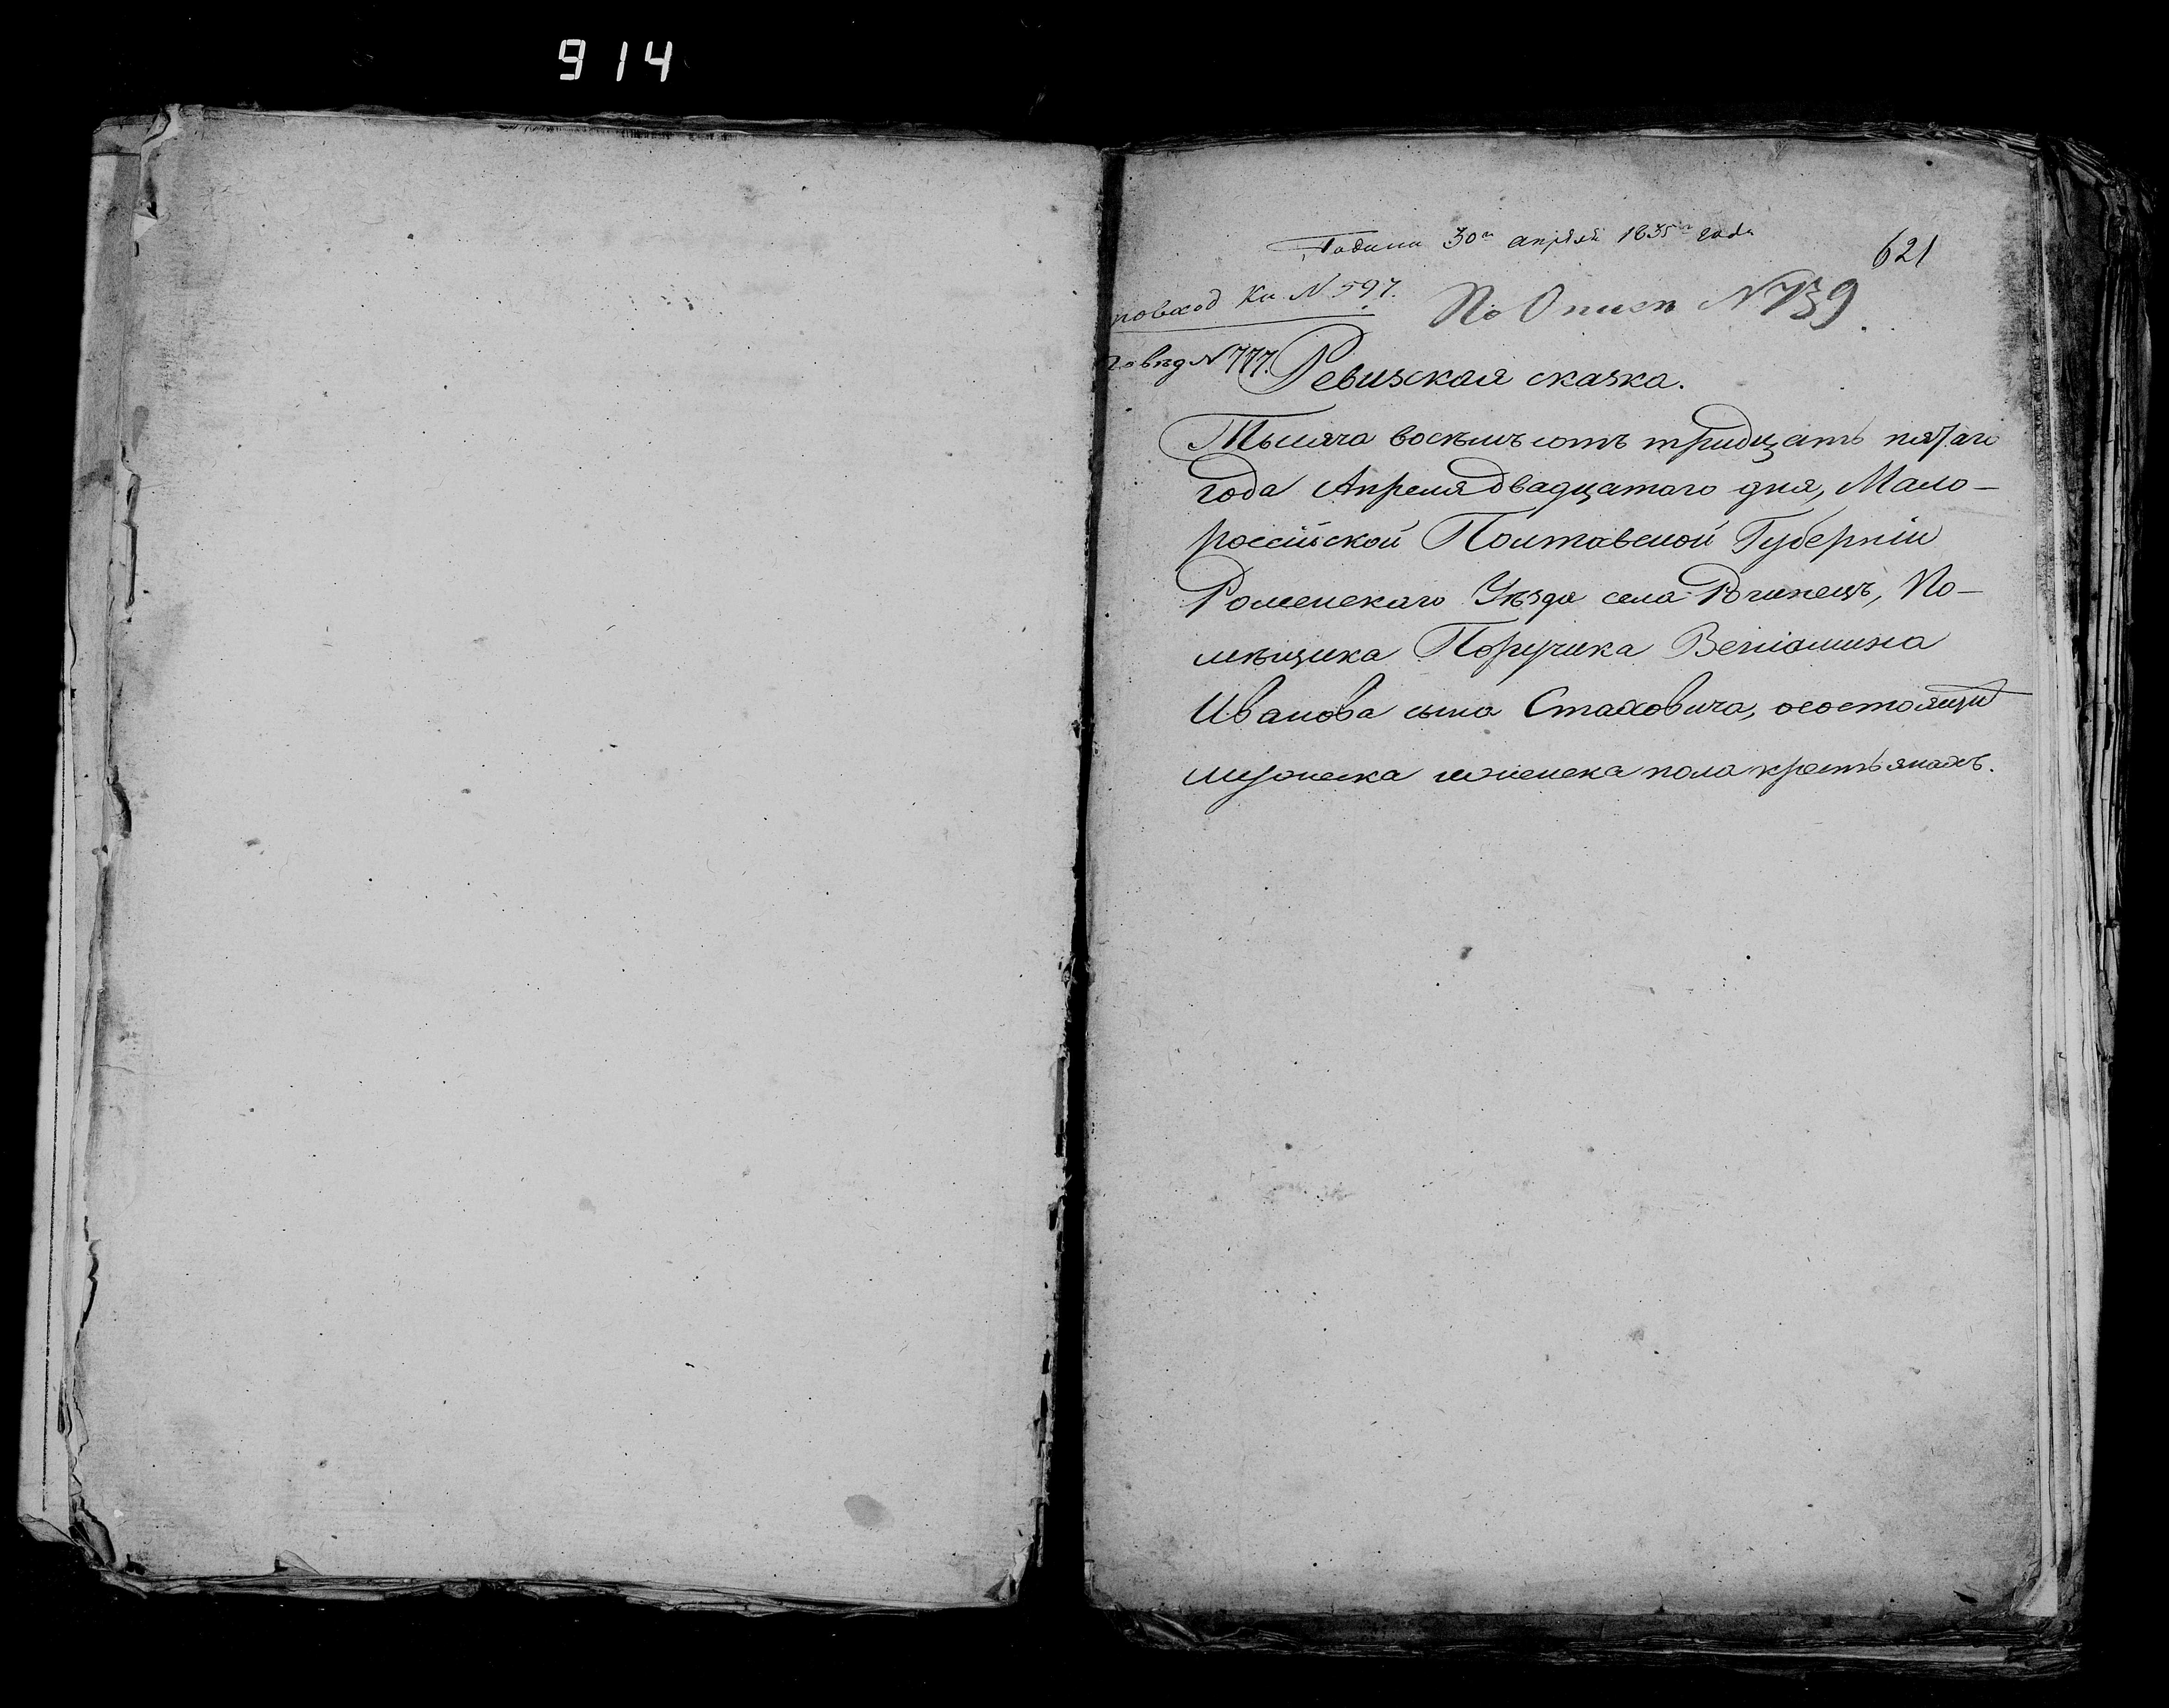 914
Подана 30го апрѣля 1835го года
621
по вход Кн N 597.
По Описи N 739
по вѣд N 777.
Ревизская сказка.
Тысяча восѣмъ сотъ тридцать пятаго
года Апреля двадцатого дня, Мало-
россійской Полтавской Губерніи
Роменскаго Уѣзда села Рогинецъ, По-
мѣщика Поручика Веніамина
Иванова сына Стаховича, осостоящи
мужеска иженска пола крестьянахъ.